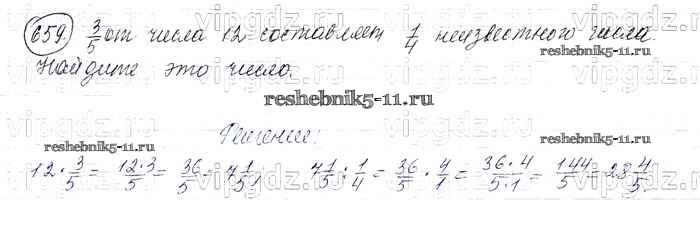 659. 3/5 от числа 12 составляет 1/4 неизвестного числа.
Найдите это число.
reshebnik5-11.ru
reshebnik5-11.ru
Решение:
reshebnik5-11.ru
reshebnik5-11.ru
12 · 3/5 = 12·3/5 = 36/5 = 7 1/5; 7 1/5 : 1/4 = 36/5 · 4/1 = 36·4/5·1 = 144/5 = 28 4/5.